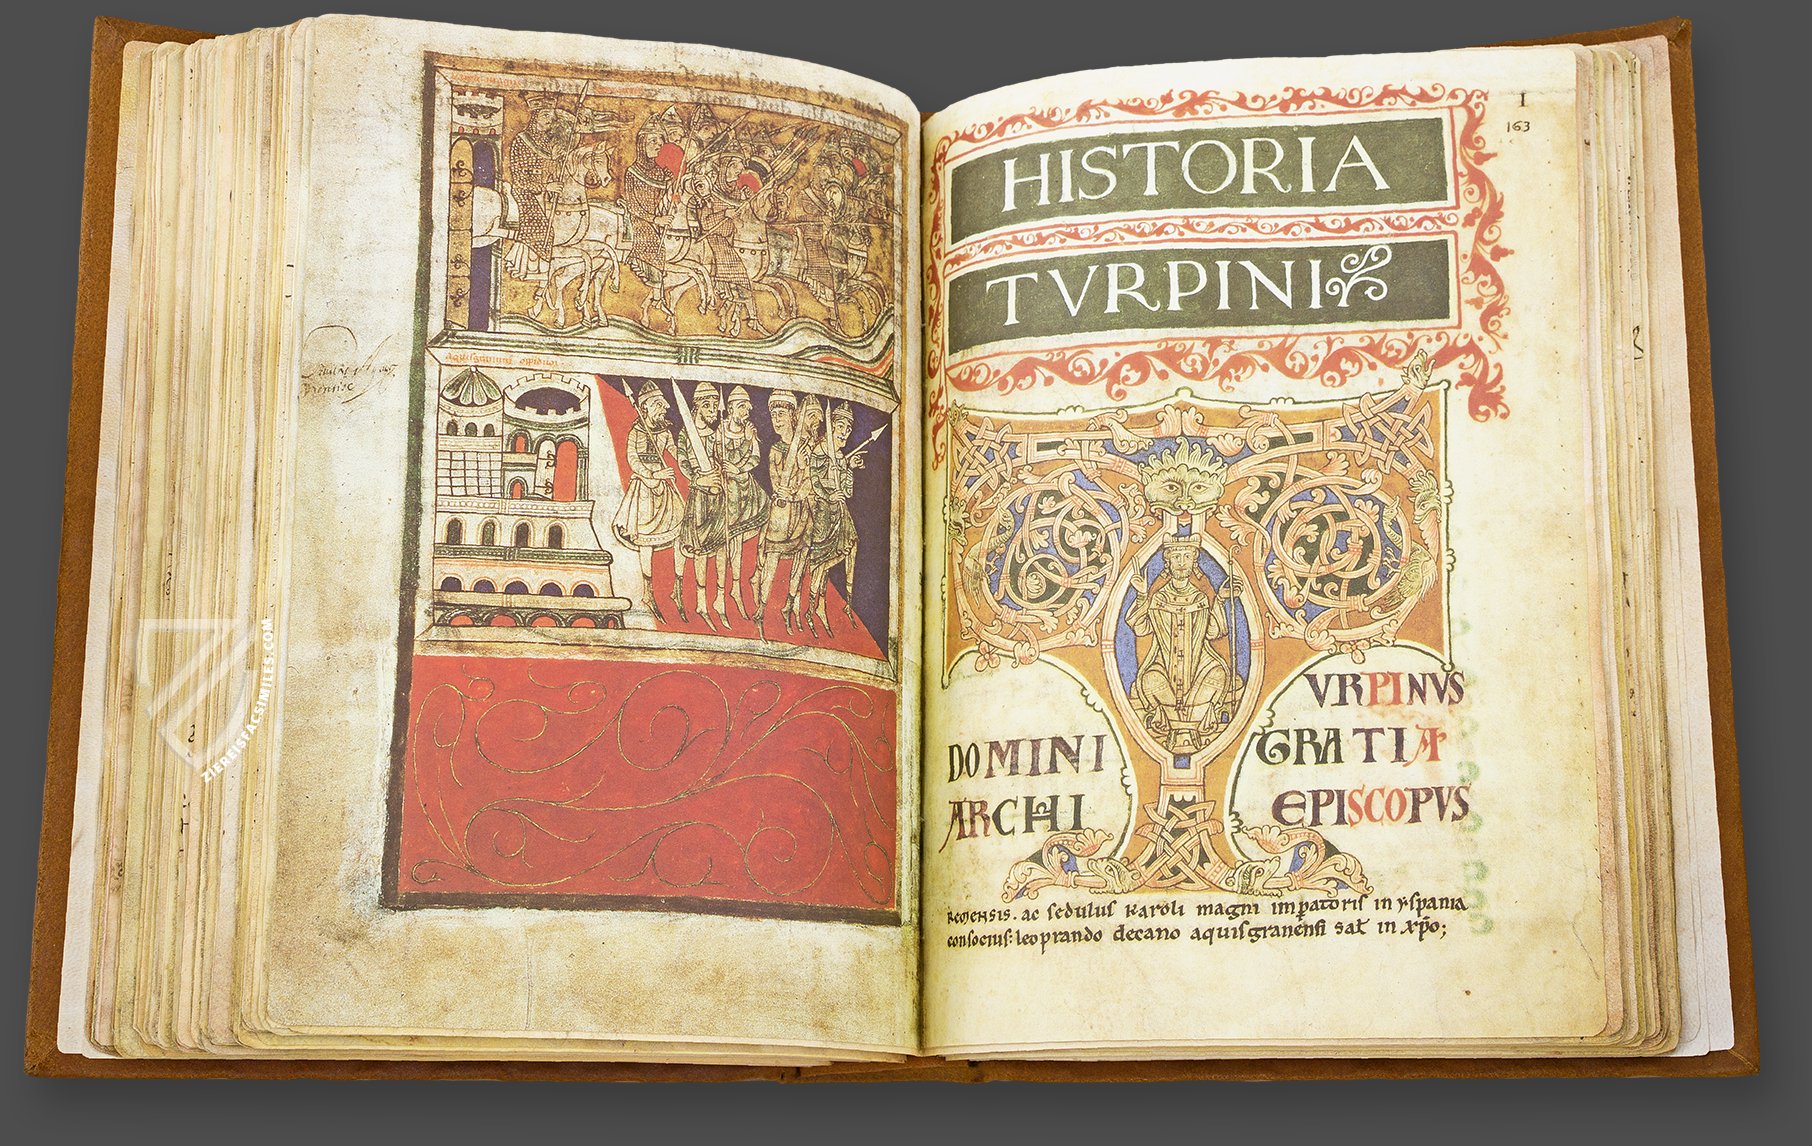 aquisgranum oppidum
I
163
HISTORIA
TVRPINI
VRPINVS
DOMINI GRATIA
ARCHI EPISCOPVS
REMENSIS. ac sedulus Karoli magni impatoris in yspania
consocius: leoprando decano aquisgranensi sat in xpo;
ZIEREISFACSIMILES.COM